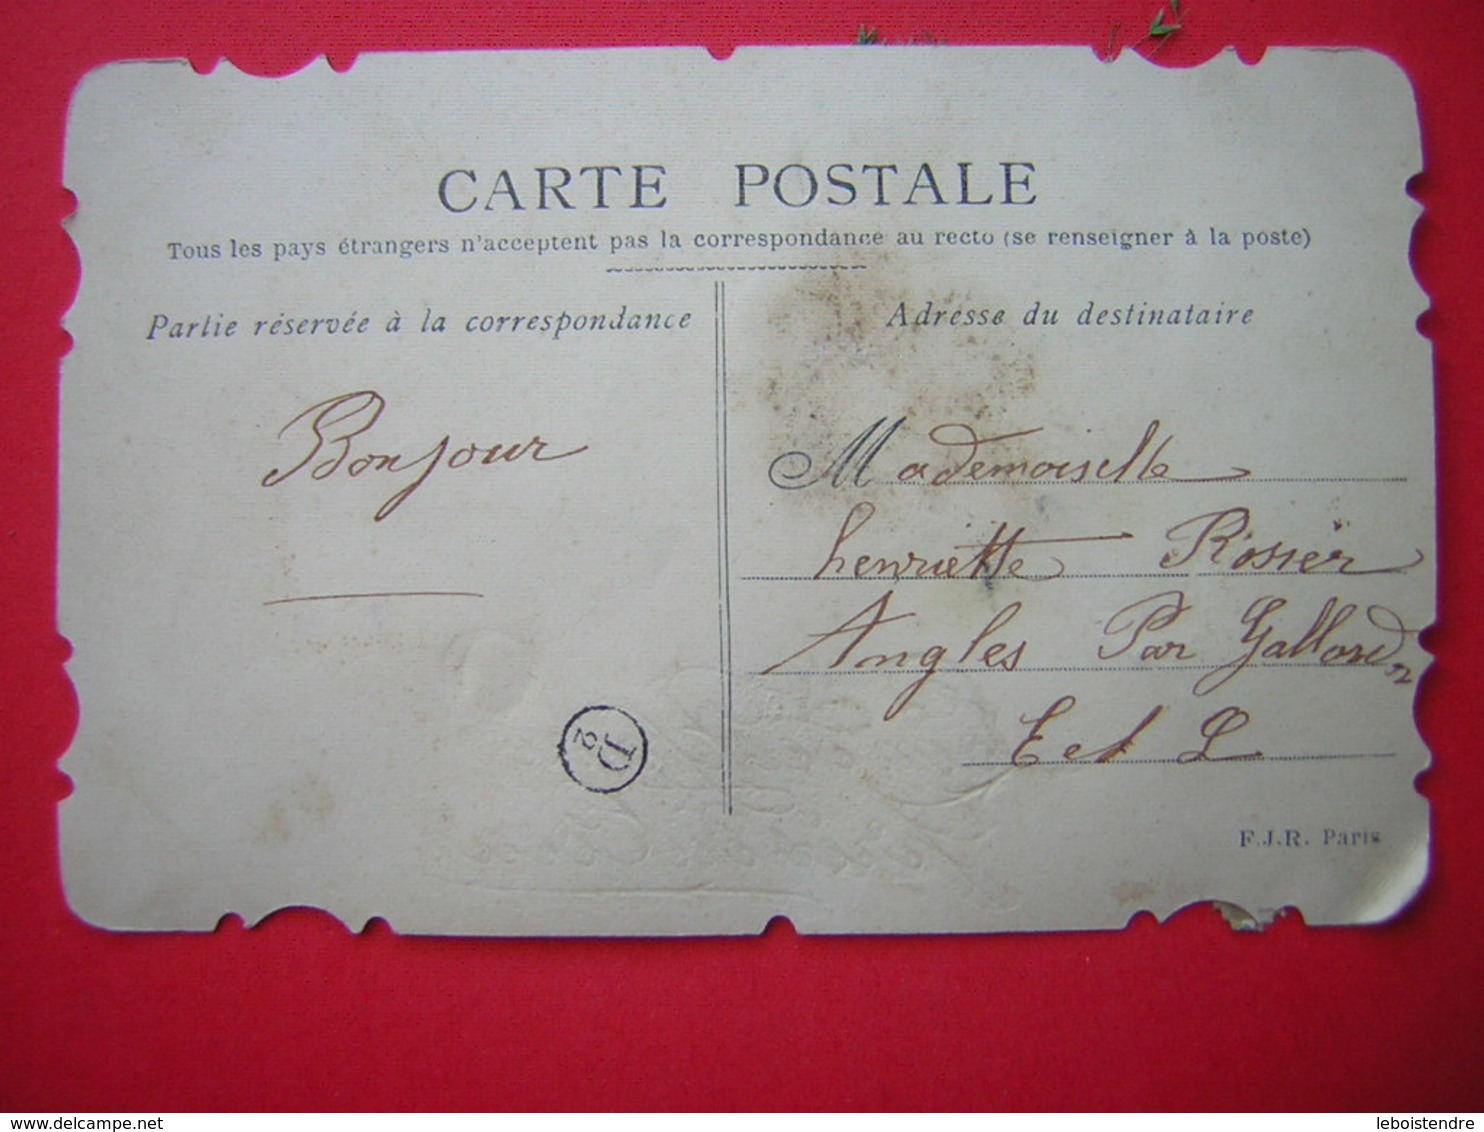 CARTE POSTALE
Tous les pays étrangers n'acceptent pas la correspondance au recto (se renseigner à la poste)
Partie réservée à la correspondance
Adresse du destinataire
Bonjour
Mademoiselle
henriette Rosier
Angles Par Gallardon
E et L
D2
F.J.R. Paris
www.delcampe.net
leboistendre